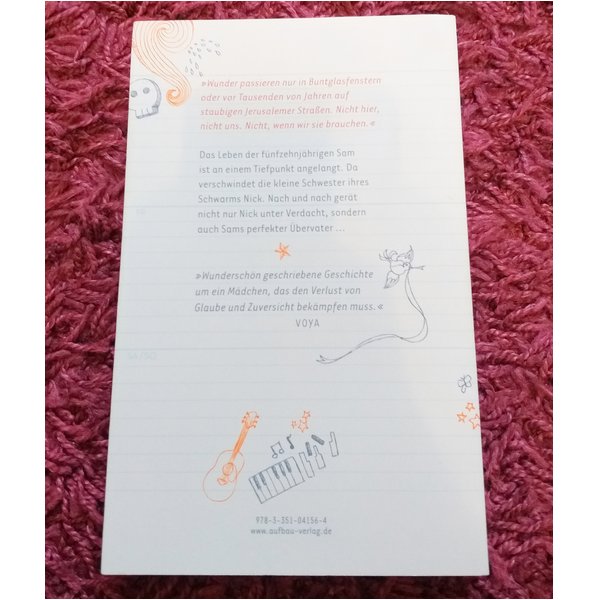 »Wunder passieren nur in Buntglasfenstern
oder vor Tausenden von Jahren auf
staubigen Jerusalemer Straßen. Nicht hier,
nicht uns. Nicht, wenn wir sie brauchen.«
Das Leben der fünfzehnjährigen Sam
ist an einem Tiefpunkt angelangt. Da
verschwindet die kleine Schwester ihres
Schwarms Nick. Nach und nach gerät
nicht nur Nick unter Verdacht, sondern
auch Sams perfekter Übervater ...
»Wunderschön geschriebene Geschichte
um ein Mädchen, das den Verlust von
Glaube und Zuversicht bekämpfen muss.«
VOYA
978-3-351-04156-4
www.aufbau-verlag.de